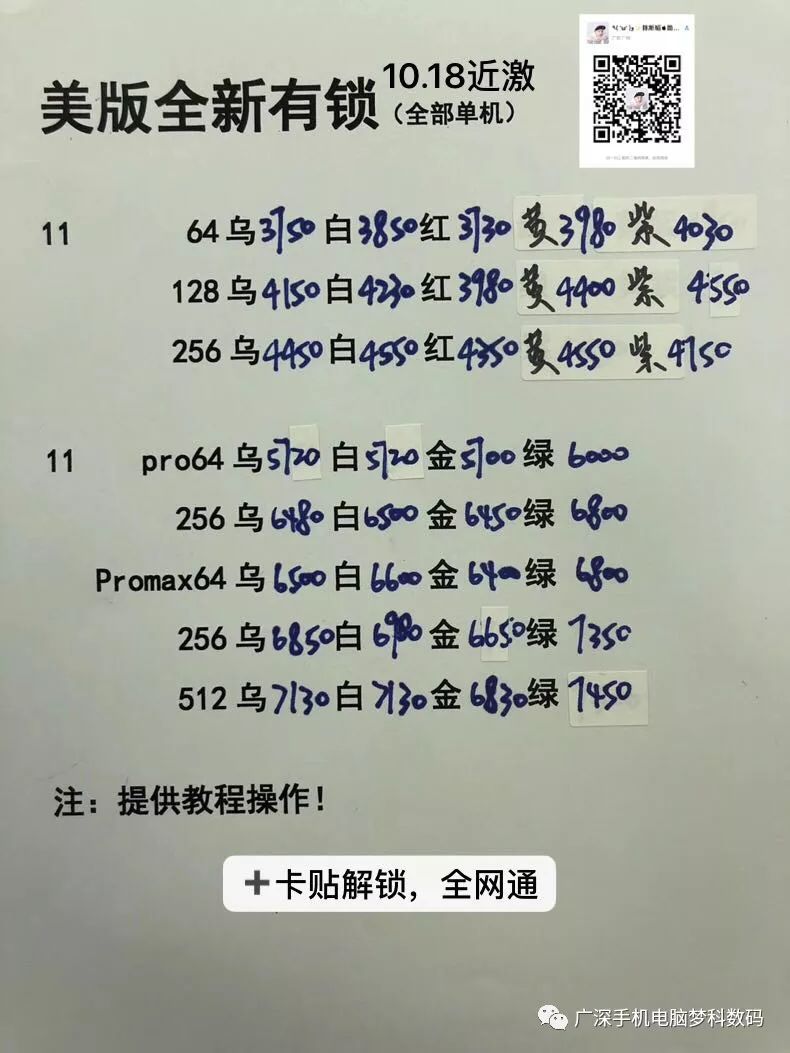 10.18近激
美版全新有锁(全部单机)
11 64乌3750白3850红3730黄3980紫4030
128乌4150白4230红3980黄4400紫4550
256乌4450白4550红4350黄4550紫4750
11 pro64乌5720白5720金5700绿6000
256乌6480白6500金6450绿6800
Promax64乌6500白6600金6400绿6800
256乌6850白6980金6650绿7350
512乌7130白7130金6830绿7450
注：提供教程操作！
➕卡贴解锁，全网通
广深手机电脑梦科数码